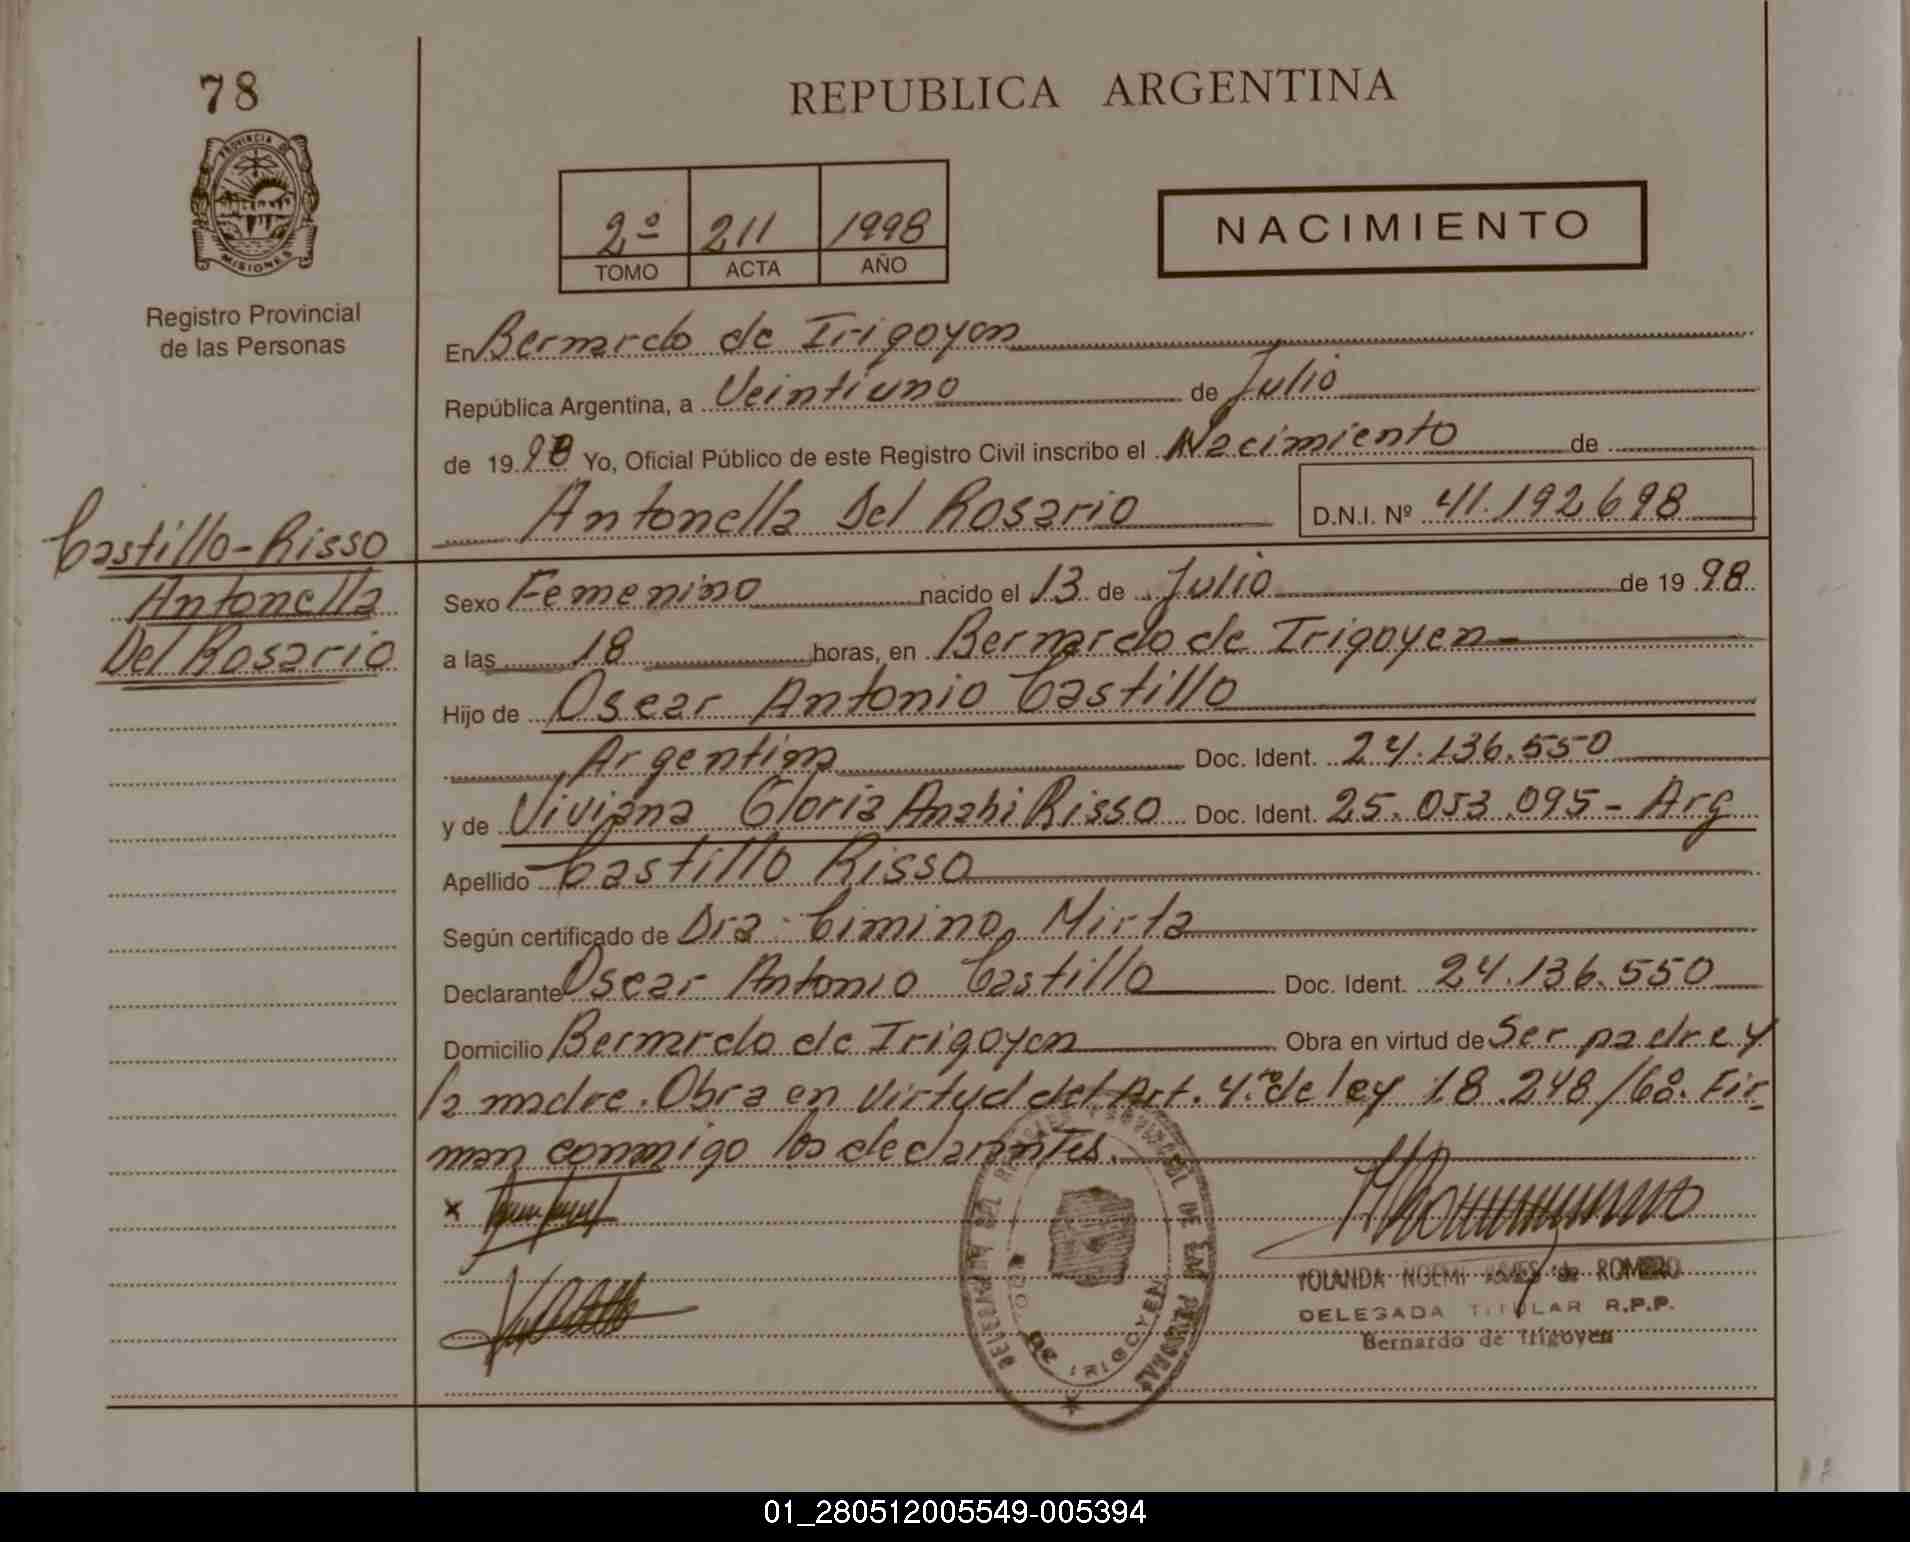 78
REPUBLICA ARGENTINA
PROVINCIA DE
MISIONES
Registro Provincial
de las Personas
2º 211 1998
TOMO ACTA AÑO
NACIMIENTO
En Bernardo de Irigoyen
República Argentina, a Veintiuno de Julio
de 1998 Yo, Oficial Público de este Registro Civil inscribo el Nacimiento de
Antonella Del Rosario D.N.I. Nº 41.192698
Castillo-Risso
Antonella
Del Rosario
Sexo Femenino nacido el 13 de Julio de 1998
a las 18 horas, en Bernardo de Irigoyen
Hijo de Oscar Antonio Castillo
Argentina Doc. Ident. 24.136.550
y de Viviana Gloria Anahi Risso Doc. Ident. 25.053.095- Arg
Apellido Castillo Risso
Según certificado de Dra. Cimino, Mirta
Declarante Oscar Antonio Castillo Doc. Ident. 24.136.550
Domicilio Bernardo de Irigoyen Obra en virtud de Ser padre y
la madre. Obra en virtud del Art. 4.to de ley 18.248/68. Fir-
man conmigo los declarantes.
x
YOLANDA NOEMI de ROMERO
DELEGADA TITULAR R.P.P.
Bernardo de Irigoyen
01_280512005549-005394